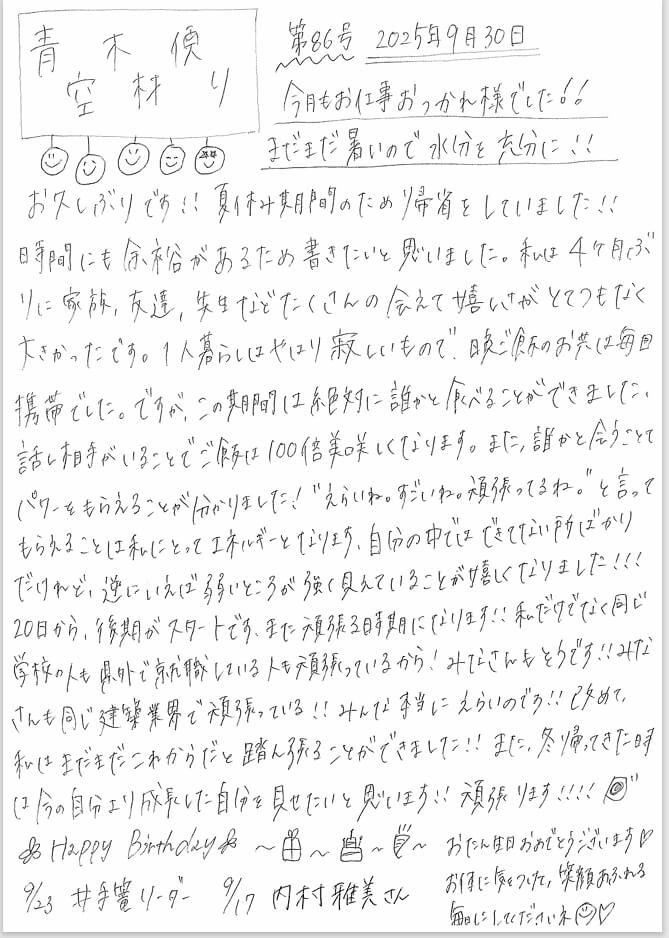 青木偵
空材り
第86号 2025年9月30日
今月もお仕事おつかれ様でした!!
まだまだ暑いので水分を充分に!!
お久しぶりです!! 夏休み期間のため帰省をしていました!!
時間にも余裕があるため書きたいと思いました。私は4ケ月ぶ
りに家族、友達、先生などたくさんの会えて嬉しさがとてつもなく
大きかったです。1人暮らしはやはり寂しいもので、晩ご飯のお共は毎回
携帯でした。ですが、この期間は絶対に誰かと食べることができました、
話し相手がいることでご飯は100倍美味しくなります。また、誰かと会うことで
パワーをもらえることが分かりました! "えらいね。すごいね。頑張ってるね。"と言って
もらえることは私にとってエネルギーとなります、自分の中ではできてない所ばかり
だけれど、逆にいえば弱いところが強く見えていることが嬉しくなりました!!!
20日から、後期がスタートです、また頑張る時期になります!! 私だけでなく同じ
学校の人も県外で就職している人も頑張っているから! みなさんもそうです!! みな
さんも同じ建築業界で頑張っている!! みんな本当にえらいのです!! 改めて、
私はまだまだこれからだと踏ん張ることができました!! また、冬帰ってきた時
は今の自分より成長した自分を見せたいと思います!! 頑張ります!!!!
Happy Birthday ~ ~ ~
9/23 井手 リーダー 9/17 内村雅美さん
おたん生日おめでとうございます♡
お体に気をつけて、笑顔あふれる
毎日にしてくださいネ♡